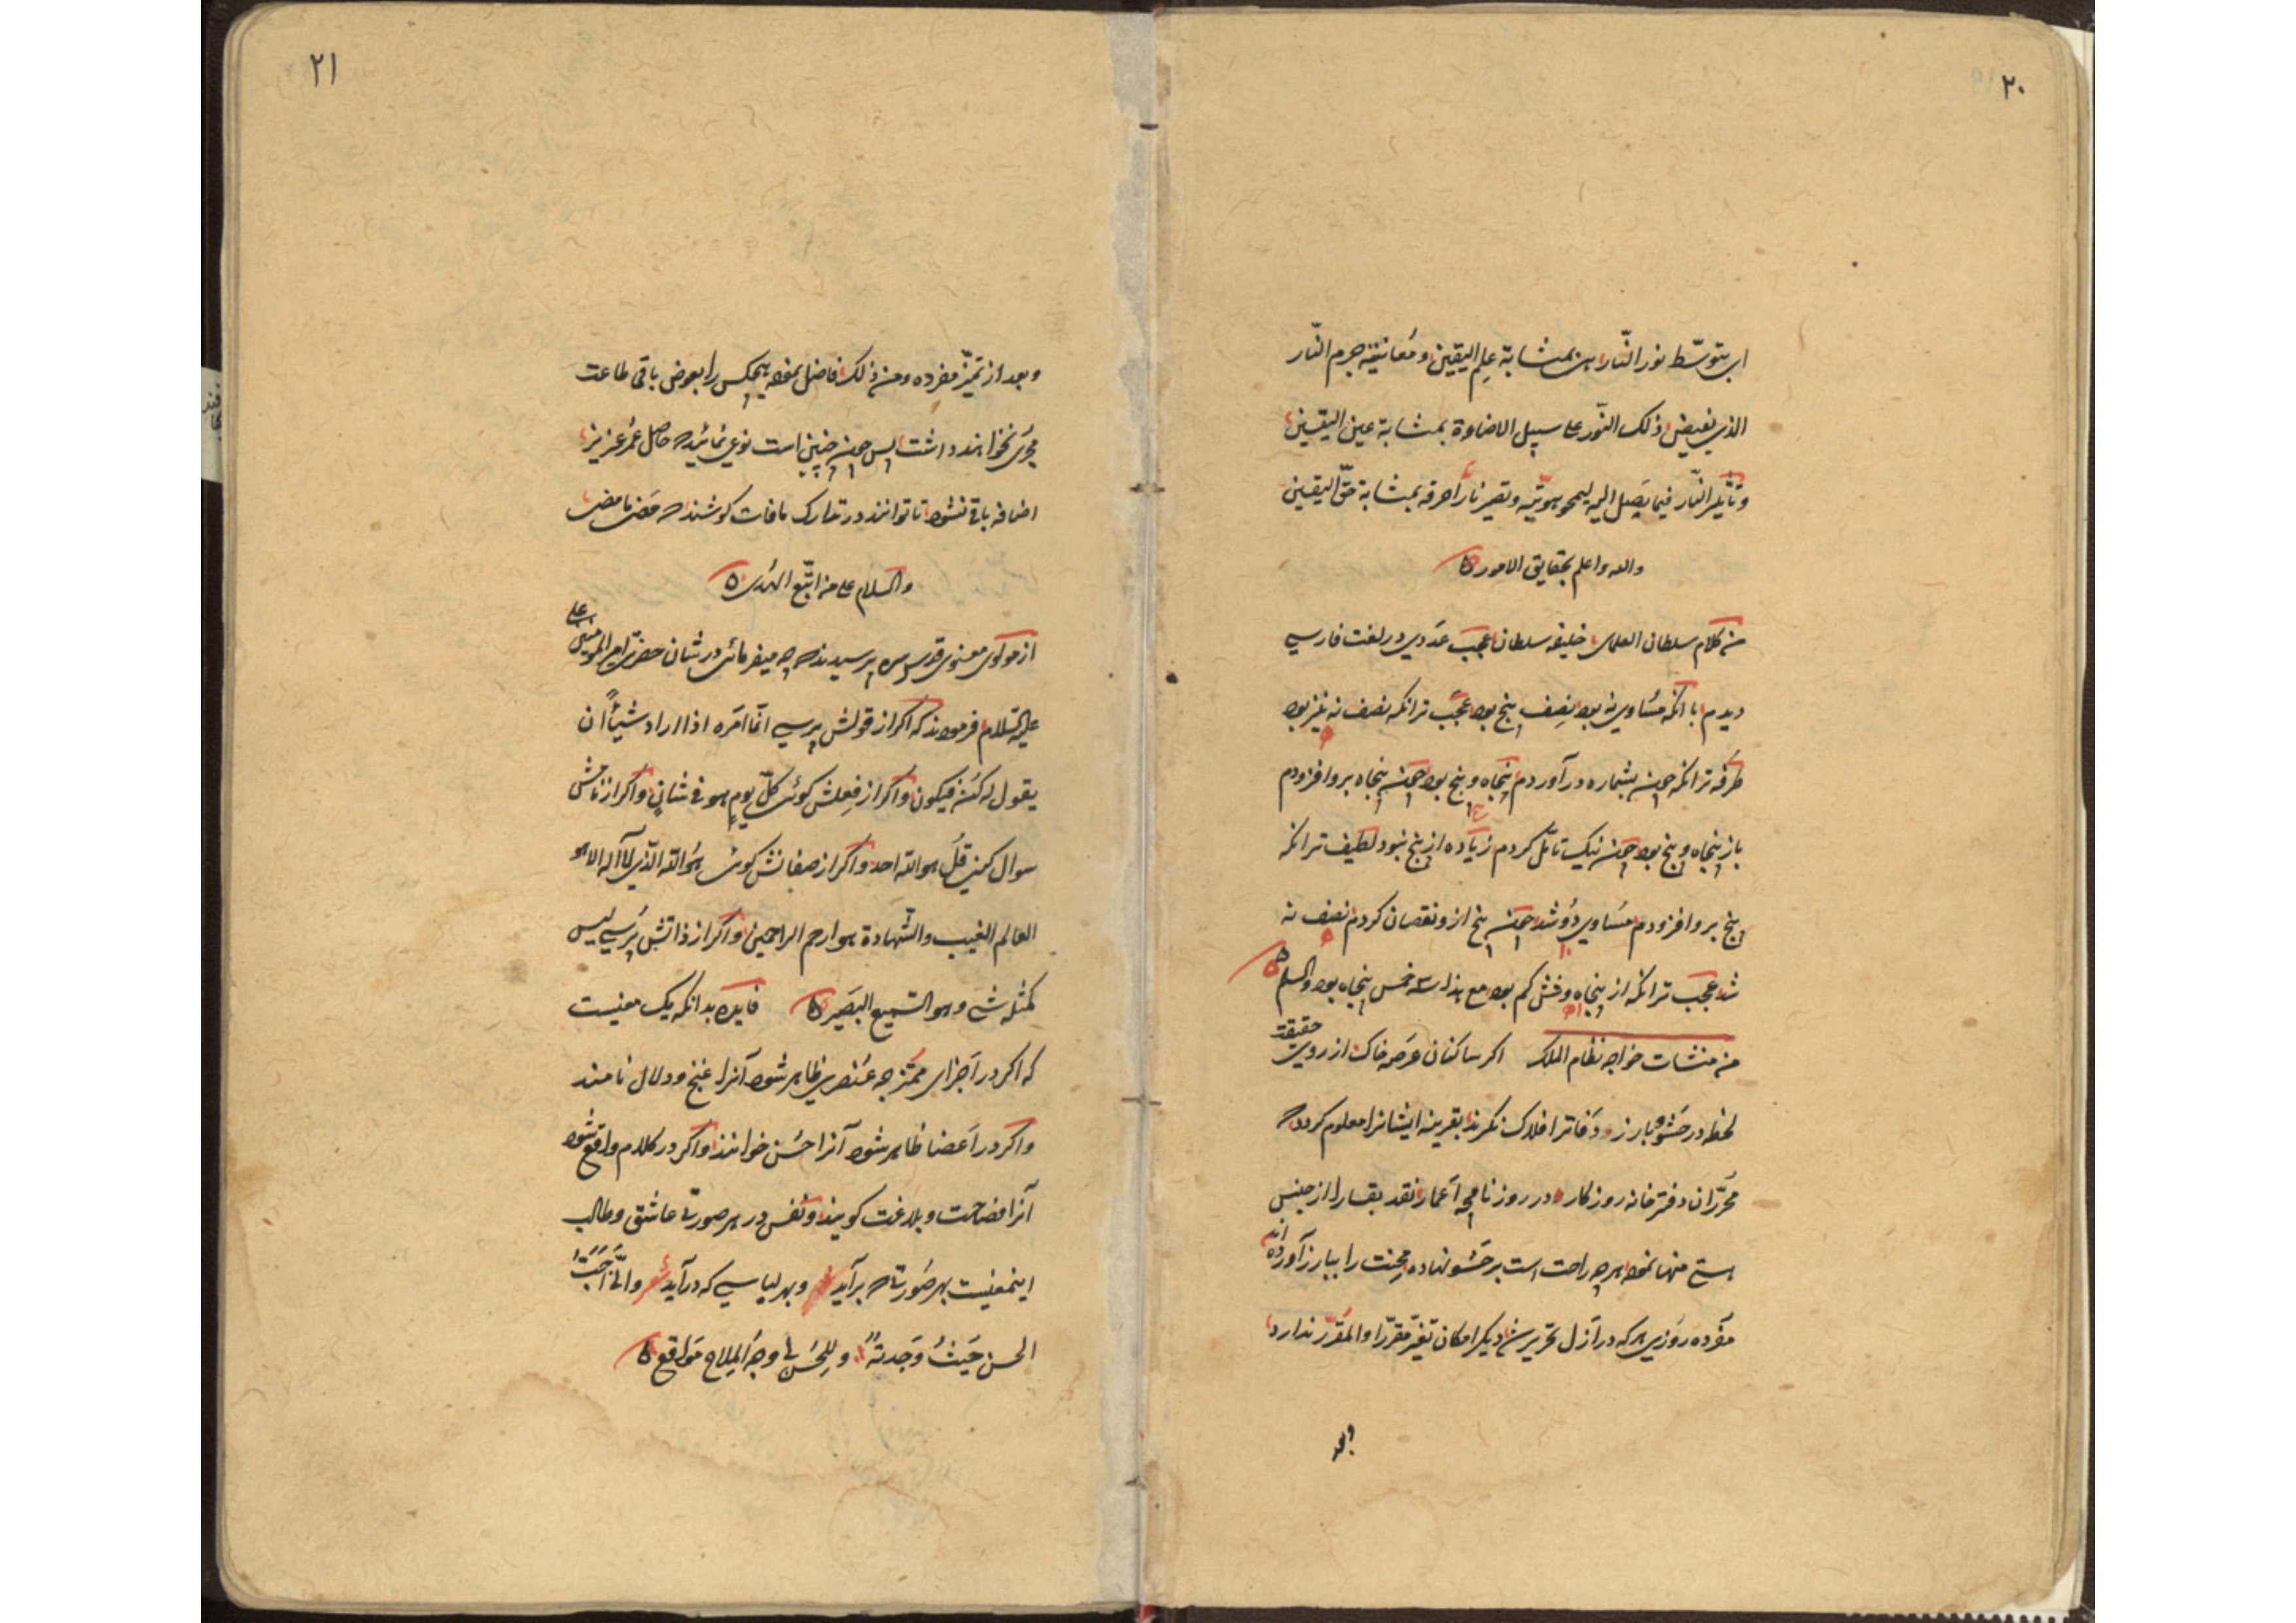 ۲۰
ای بتوسّط نور النّار هی بمثابة علم الیقین و مُعاینة جرم النّار
الذی یفیض ذلک النّور علی سبیل الاضاءة بمثابة عین الیقین
و تأثیر النّار فیما یَصِل الیه لیمحو هویّته و تصیر ناراً حرقه بمثابة حقّ الیقین
والله واعلم بحقایق الامور
من کلام سلطان العلمای خلیفه سلطان عجب عَددی در لغت فارسی
دیدم با انکه مسَاوی نه بود نِصِف پنج بود عجَب تر انکه نصف نه نیز بود
طرفه تر انکه چون بشماره در آوردم پنجاه و پنج بود چون پنجاه برو افزودم
باز پنجاه و پنج بود چون نیک تامّل کردم زیاده از پنج نبود لطیف تر انکه
پنج برو افزودم مسَاوی دُو شد چون پنج ازو نقصان کردم نصف نه
شد عجَب تر انکه از پنجاه و شش کم بود مع هذا سه خمس پنجاه بود والسلم
من منشات خواجه نظام الملک اکر ساکنان عَرصَه خاک از روی حقیقت
لحظه در حَشو و بارز دَفاتر افلاک نکرند بقرینه ایشانرا معلوم کردد که
محُرّران دفترخانه روزکار در روزنامچه اَعمار نقد بقا را از جنس
هستی منها نموده هرچه راحت است بر حَشو نهاده محِنت را ببارز آورده اند
مفَرده روَزی هر که در اَزل تحریر شد دیکر امکان تغیّر مقَرّرا والمقَرّر ندارد
وبعد
۲۱
و بعد از تمیّز مفرده و من ذلک فاضل نموده هیچکس را بعوض باقی طاعت
مجُریٰ نخواهند داشت پس چون چنین است نوعی نمائید که حاصل عمُر عزیز
اضافه باقی نشود تا توانند در تدارک مافات کوشند که مَضی مامضی
والسلام علی من اتّبع الهُدی
از مولوی معنوی قدس سره پرسیدند که چه میفرمائی در شان حضرت امیر المومنین علی
علیه السّلام فرمودند که اکر از قولش پرسی انّما امَره اذا اراد شیئاً ان
یقول له کُن فیکون و اکر از فِعلش کوئی کلّ یومٍ هو فی شانٍ و اکر از نامش
سوال کنی قُل هو الله احد و اکر از صفاتش کوئی هُو الله الّذی لا آله الا هو
العالم الغیب والشّهادة هو ارحم الراحمین و اکر از ذاتش پُرسی لیس
کمثله شی و هو السّمیع البَصَیر فایده بدانکه یک معنیست
که اکر در اَجزای ممُتزجه عنُصری ظاهر شود آنرا غنج و دلال نامند
و اکر در اَعضا ظاهر شود آنرا حسُن خوانند و اکر در کلام واقع شود
آنرا فصاحت و بلاغت کویند و نفس در هر صورتی عاشق و طالب
اینمعنیست بهر صُورتی که برآید و بهر لباسی که درآید شعر وانّی اُحَبُّ
الحسن حَیثُ وَجدتهُ وللِحُسن فی وجُه المِلاح مَواقع